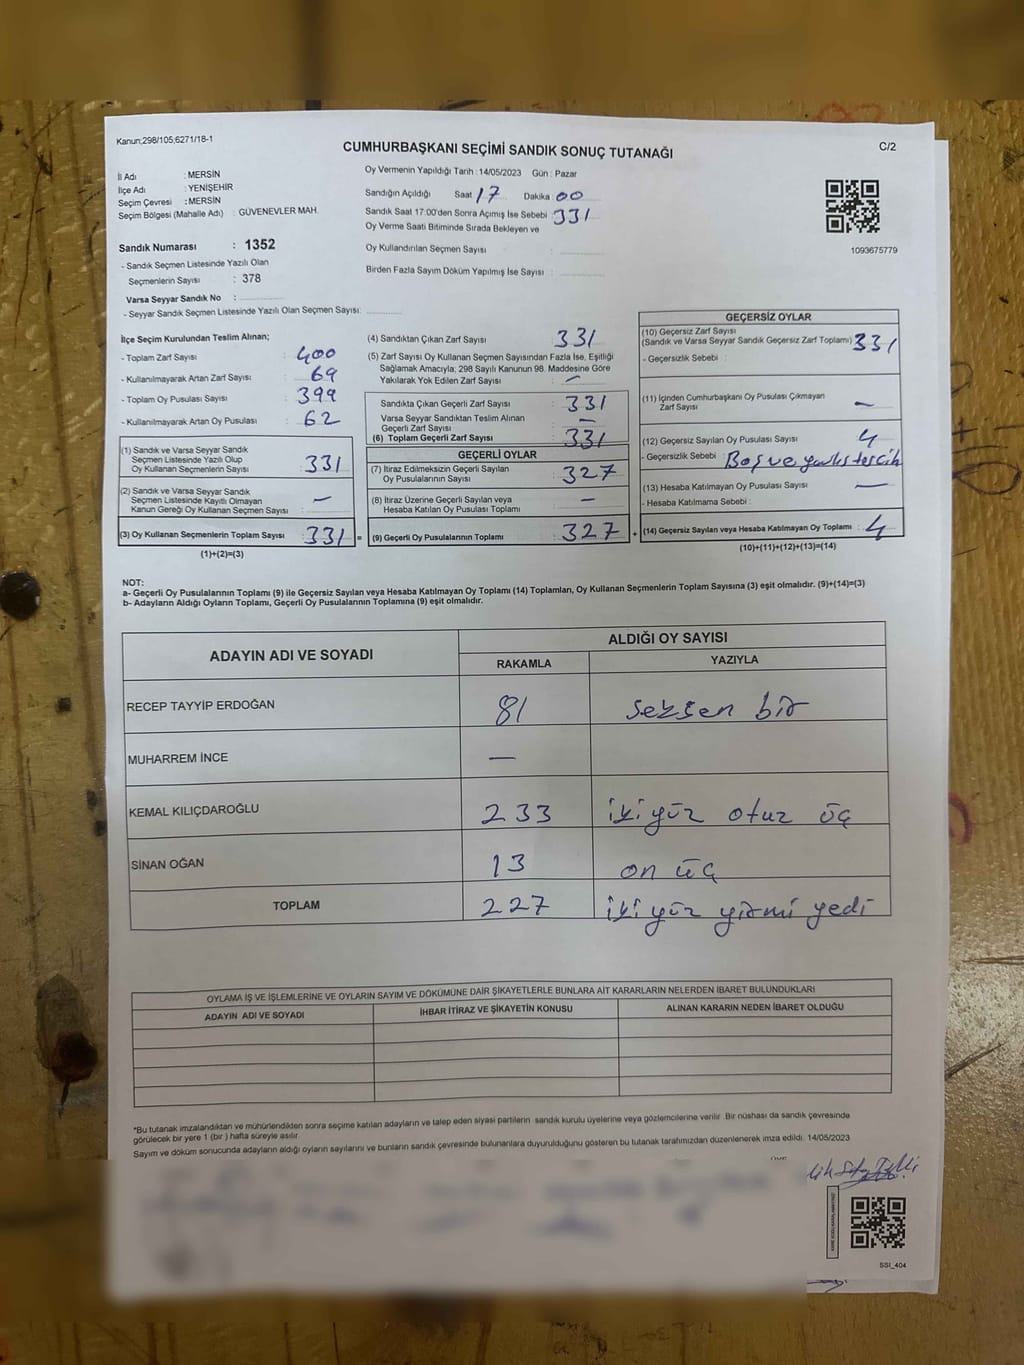 Kanun;298/105;6271/18-1
CUMHURBAŞKANI SEÇİMİ SANDIK SONUÇ TUTANAĞI
C/2
İl Adı : MERSİN
İlçe Adı : YENİŞEHİR
Seçim Çevresi : MERSİN
Seçim Bölgesi (Mahalle Adı) : GÜVENEVLER MAH.
Oy Vermenin Yapıldığı Tarih : 14/05/2023 Gün : Pazar
Sandığın Açıldığı Saat 17 Dakika 00
Sandık Saat 17:00'den Sonra Açılmış İse Sebebi : 331
Oy Verme Saati Bitiminde Sırada Bekleyen ve
Oy Kullandırılan Seçmen Sayısı :
Birden Fazla Sayım Döküm Yapılmış İse Sayısı :
1093675779
Sandık Numarası : 1352
- Sandık Seçmen Listesinde Yazılı Olan
Seçmenlerin Sayısı : 378
Varsa Seyyar Sandık No :
- Seyyar Sandık Seçmen Listesinde Yazılı Olan Seçmen Sayısı:
İlçe Seçim Kurulundan Teslim Alınan;
- Toplam Zarf Sayısı : 400
- Kullanılmayarak Artan Zarf Sayısı : 69
- Toplam Oy Pusulası Sayısı : 399
- Kullanılmayarak Artan Oy Pusulası : 62
(1) Sandık ve Varsa Seyyar Sandık
Seçmen Listesinde Yazılı Olup
Oy Kullanan Seçmenlerin Sayısı : 331
(2) Sandık ve Varsa Seyyar Sandık
Seçmen Listesinde Kayıtlı Olmayan
Kanun Gereği Oy Kullanan Seçmen Sayısı : —
(3) Oy Kullanan Seçmenlerin Toplam Sayısı : 331 =
(1)+(2)=(3)
(4) Sandıktan Çıkan Zarf Sayısı : 331
(5) Zarf Sayısı Oy Kullanan Seçmen Sayısından Fazla İse, Eşitliği
Sağlamak Amacıyla; 298 Sayılı Kanunun 98. Maddesine Göre
Yakılarak Yok Edilen Zarf Sayısı : —
Sandıkta Çıkan Geçerli Zarf Sayısı : 331
Varsa Seyyar Sandıktan Teslim Alınan
Geçerli Zarf Sayısı : —
(6) Toplam Geçerli Zarf Sayısı : 331
GEÇERLİ OYLAR
(7) İtiraz Edilmeksizin Geçerli Sayılan
Oy Pusulalarının Sayısı : 327
(8) İtiraz Üzerine Geçerli Sayılan veya
Hesaba Katılan Oy Pusulası Toplamı : —
(9) Geçerli Oy Pusulalarının Toplamı : 327 +
GEÇERSİZ OYLAR
(10) Geçersiz Zarf Sayısı
(Sandık ve Varsa Seyyar Sandık Geçersiz Zarf Toplamı) : 331
- Geçersizlik Sebebi :
(11) İçinden Cumhurbaşkanı Oy Pusulası Çıkmayan
Zarf Sayısı : —
(12) Geçersiz Sayılan Oy Pusulası Sayısı : 4
- Geçersizlik Sebebi : Boş ve yanlış tercih
(13) Hesaba Katılmayan Oy Pusulası Sayısı : —
- Hesaba Katılmama Sebebi :
(14) Geçersiz Sayılan veya Hesaba Katılmayan Oy Toplamı : 4
(10)+(11)+(12)+(13)=(14)
NOT:
a- Geçerli Oy Pusulalarının Toplamı (9) ile Geçersiz Sayılan veya Hesaba Katılmayan Oy Toplamı (14) Toplamları, Oy Kullanan Seçmenlerin Toplam Sayısına (3) eşit olmalıdır. (9)+(14)=(3)
b- Adayların Aldığı Oyların Toplamı, Geçerli Oy Pusulalarının Toplamına (9) eşit olmalıdır.
ADAYIN ADI VE SOYADI
ALDIĞI OY SAYISI
RAKAMLA YAZIYLA
RECEP TAYYİP ERDOĞAN 81 seksen bir
MUHARREM İNCE —
KEMAL KILIÇDAROĞLU 233 iki yüz otuz üç
SİNAN OĞAN 13 on üç
TOPLAM 227 iki yüz yirmi yedi
OYLAMA İŞ VE İŞLEMLERİNE VE OYLARIN SAYIM VE DÖKÜMÜNE DAİR ŞİKAYETLERLE BUNLARA AİT KARARLARIN NELERDEN İBARET BULUNDUKLARI
ADAYIN ADI VE SOYADI İHBAR İTİRAZ VE ŞİKAYETİN KONUSU ALINAN KARARIN NEDEN İBARET OLDUĞU
*Bu tutanak imzalandıktan ve mühürlendikten sonra seçime katılan adayların ve talep eden siyasi partilerin sandık kurulu üyelerine veya gözlemcilerine verilir. Bir nüshası da sandık çevresinde
görülecek bir yere 1 (bir) hafta süreyle asılır.
Sayım ve döküm sonucunda adayların aldığı oyların sayılarını ve bunların sandık çevresinde bulunanlara duyurulduğunu gösteren bu tutanak tarafımızdan düzenlenerek imza edildi. 14/05/2023
SSI_404